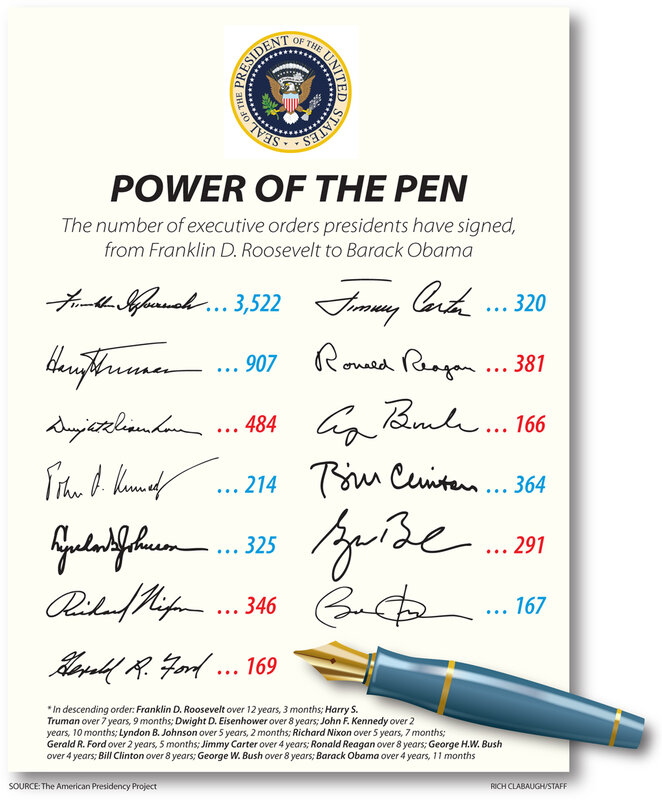 SEAL OF THE PRESIDENT OF THE UNITED STATES
POWER OF THE PEN
The number of executive orders presidents have signed,
from Franklin D. Roosevelt to Barack Obama
Franklin D Roosevelt ... 3,522
Harry Truman ... 907
Dwight D Eisenhower ... 484
John F. Kennedy ... 214
Lyndon B. Johnson ... 325
Richard Nixon ... 346
Gerald R. Ford ... 169
Jimmy Carter ... 320
Ronald Reagan ... 381
G Bush ... 166
Bill Clinton ... 364
... 291
... 167
* In descending order: Franklin D. Roosevelt over 12 years, 3 months; Harry S.
Truman over 7 years, 9 months; Dwight D. Eisenhower over 8 years; John F. Kennedy over 2
years, 10 months; Lyndon B. Johnson over 5 years, 2 months; Richard Nixon over 5 years, 7 months;
Gerald R. Ford over 2 years, 5 months; Jimmy Carter over 4 years; Ronald Reagan over 8 years; George H.W. Bush
over 4 years; Bill Clinton over 8 years; George W. Bush over 8 years; Barack Obama over 4 years, 11 months
SOURCE: The American Presidency Project
RICH CLABAUGH/STAFF